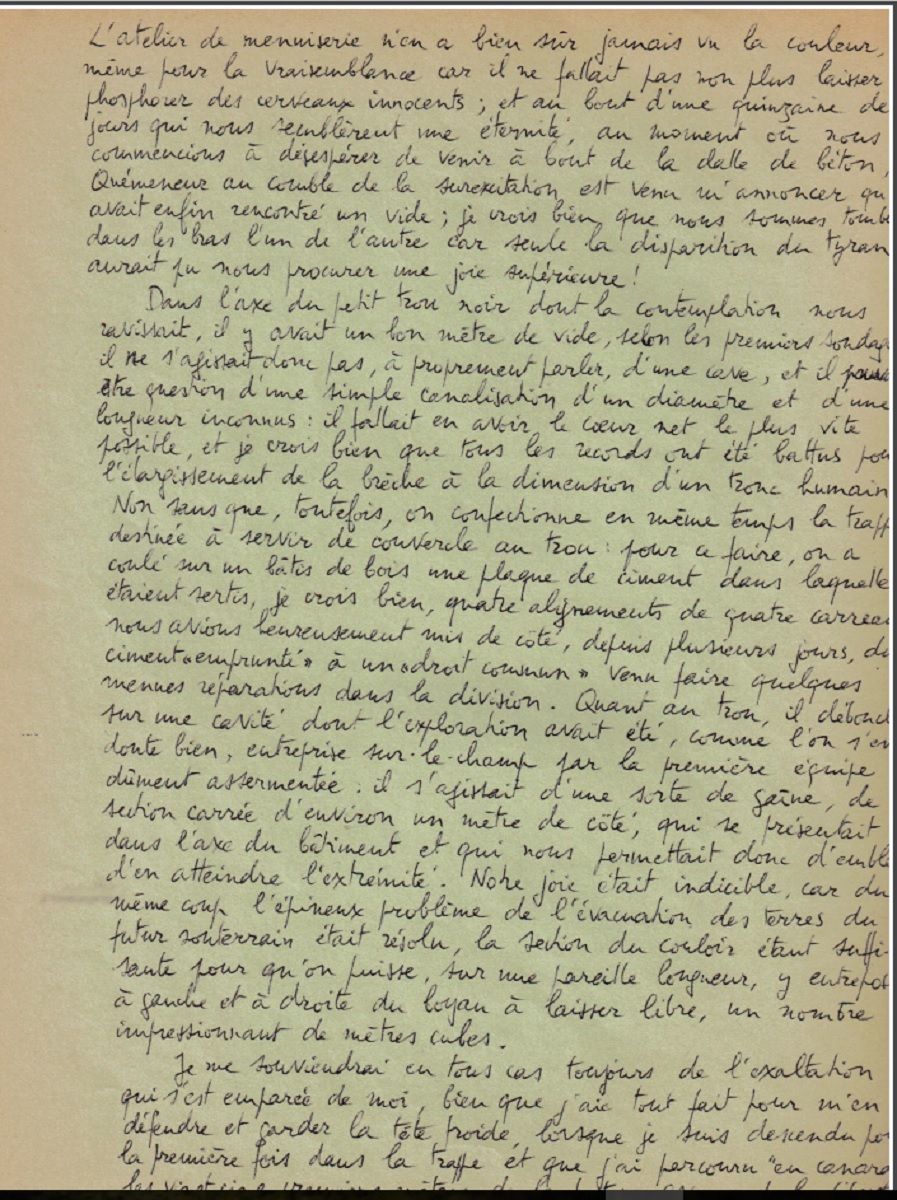 L'atelier de menuiserie n'en a bien sûr jamais vu la couleur,
même pour la vraisemblance car il ne fallait pas non plus laisser
phosphorer des cerveaux innocents ; et au bout d'une quinzaine de
jours qui nous semblèrent une éternité, au moment où nous
commencions à désespérer de venir à bout de la dalle de béton,
Quémeneur au comble de la surexcitation est venu m'annoncer qu
avait enfin rencontré un vide ; je crois bien que nous sommes tombé
dans les bras l'un de l'autre car seule la disparition du tyran
aurait pu nous procurer une joie supérieure !
Dans l'axe du petit trou noir dont la contemplation nous
ravissait, il y avait un bon mètre de vide, selon les premiers sondag
il ne s'agissait donc pas, à proprement parler, d'une cave, et il
être question d'une simple canalisation d'un diamètre et d'une
longueur inconnus : il fallait en avoir le cœur net le plus vite
possible, et je crois bien que tous les records ont été battus pou
l'élargissement de la brèche à la dimension d'un tronc humain
Non sans que, toutefois, on confectionne en même temps la trapp
destinée à servir de couvercle au trou : pour ce faire, on a
coulé sur un bâtis de bois une plaque de ciment dans laquelle
étaient sertis, je crois bien, quatre alignements de quatre carreau
nous avions heureusement mis de côté, depuis plusieurs jours, du
ciment « emprunté » à un « droit commun » venu faire quelques
menues réparations dans la division. Quant au trou, il débouch
sur une cavité dont l'exploration avait été, comme l'on s'en
doute bien, entreprise sur-le-champ par la première équipe
dûment assermentée. il s'agissait d'une sorte de gaîne, de
section carrée d'environ un mètre de côté, qui se présentait
dans l'axe du bâtiment et qui nous permettait donc d'emblé
d'en atteindre l'extrémité. Notre joie était indicible, car du
même coup l'épineux problème de l'évacuation des terres du
futur souterrain était résolu, la section du couloir étant suffi-
sante pour qu'on puisse, sur une pareille longueur, y entrepos
à gauche et à droite du boyau à laisser libre, un nombre
impressionnant de mètres cubes.
Je me souviendrai en tous cas toujours de l'exaltation
qui s'est emparée de moi, bien que j'aie tout fait pour m'en
défendre et garder la tête froide, lorsque je suis descendu po
la première fois dans la trappe et que j'ai parcouru "en canard